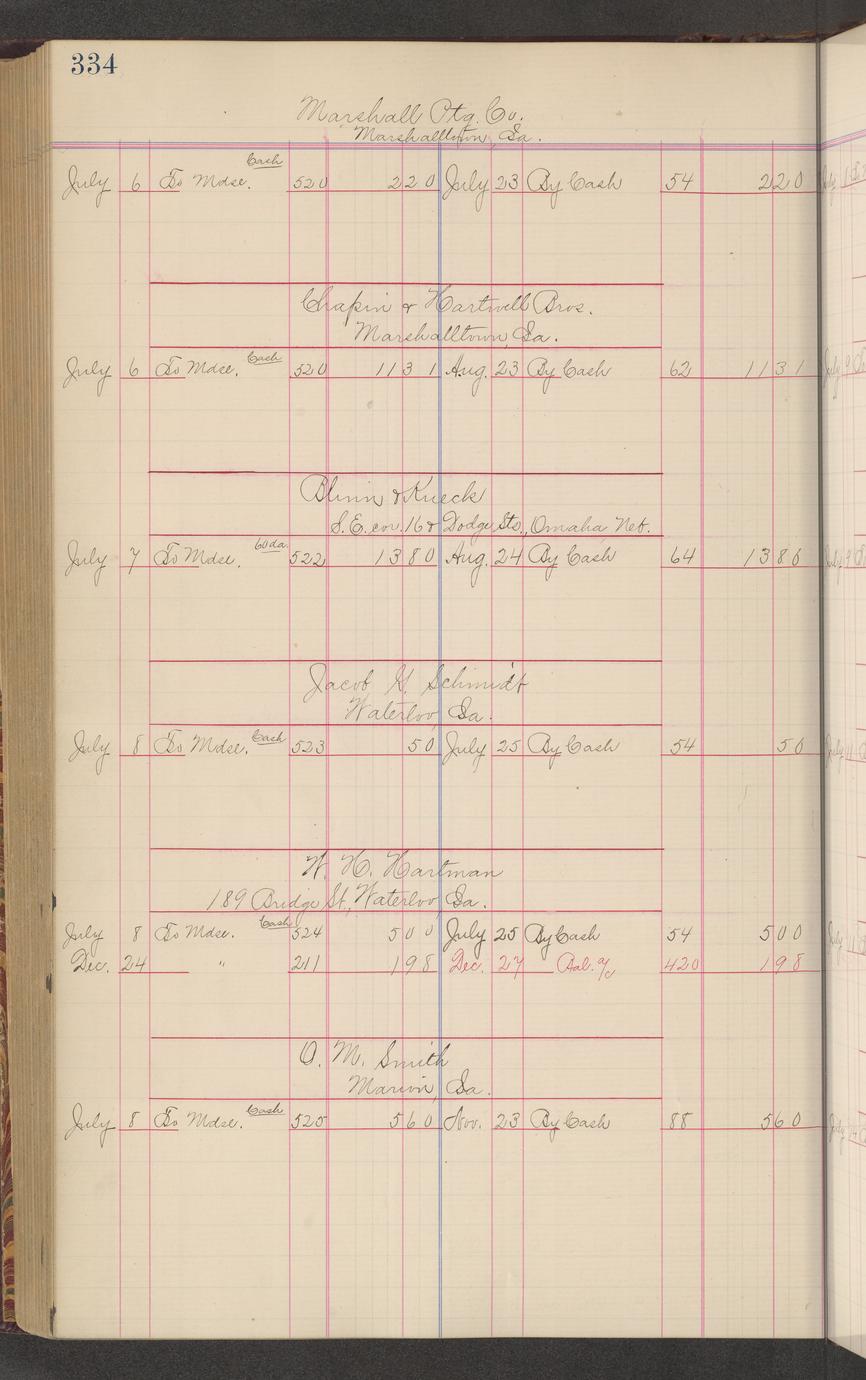 334
Marshall Ptg. Co.
Marshalltown, Ia.
July 6 To Mdse. Cash 520 2 2 0 July 23 By Cash 54 2 2 0
Chapin & Hartwell Bros.
Marshalltown, Ia.
July 6 To Mdse. Cash 520 11 3 1 Aug. 23 By Cash 62 11 3 1
Blinn & Kueck
S.E. cor. 16 & Dodge Sts., Omaha Neb.
July 7 To Mdse. 60 da. 522 13 8 0 Aug. 24 By Cash 64 13 8 0
Jacob H. Schmidt
Waterloo, Ia.
July 8 To Mdse. Cash 523 5 0 July 25 By Cash 54 5 0
W. H. Hartman
189 Bridge St., Waterloo, Ia.
July 8 To Mdse. Cash 524 5 0 0 July 25 By Cash 54 5 0 0
Dec. 24 " 211 1 9 8 Dec. 27 Bal. a/c 420 1 9 8
O. M. Smith
Marion, Ia.
July 8 To Mdse. Cash 525 5 6 0 Nov. 23 By Cash 88 5 6 0